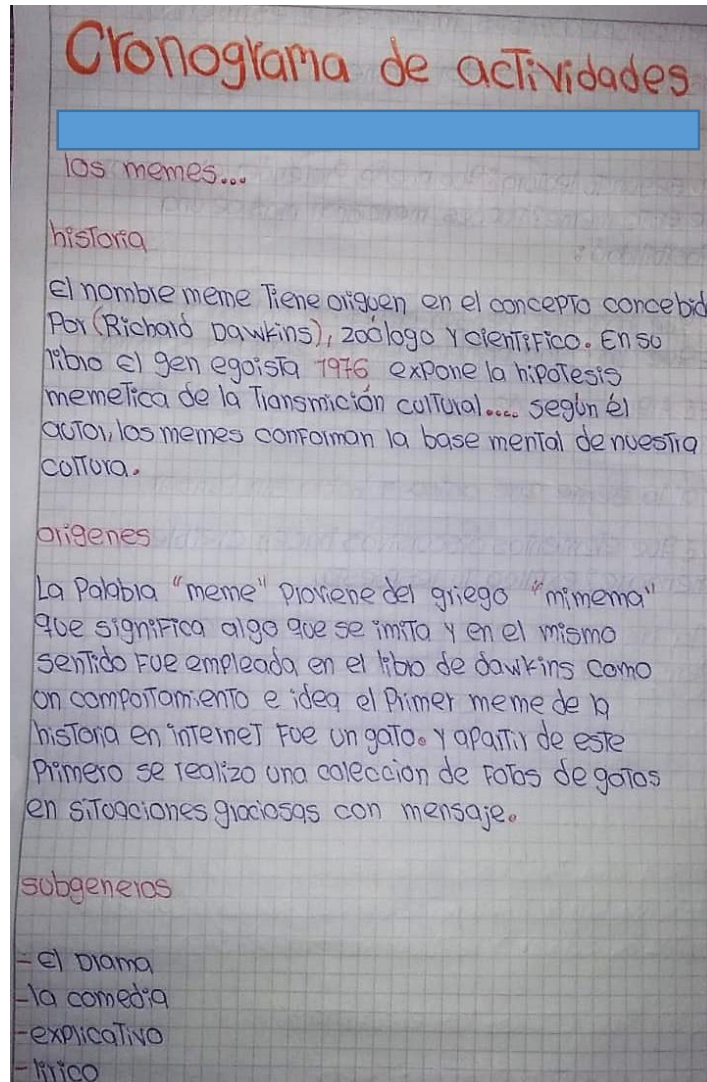 Cronograma de actividades
los memes...
historia
El nombre meme Tiene origuen en el concepto concebid
Por (Richard Dawkins), zoólogo y científico. En su
libro el gen egoista 1976 expone la hipotesis
memetica de la Transmición cultural.... según él
autor, los memes conforman la base mental de nuestra
cultura.
origenes
La Palabra "meme" proviene del griego "mimema"
que significa algo que se imita y en el mismo
sentido fue empleada en el libro de dawkins como
un comportamiento e idea el Primer meme de la
historia en internet fue un gato. Y apartir de este
Primero se realizo una coleccion de fotos de gatos
en situaciones graciosas con mensaje.
subgeneros
- El Drama
- la comedia
- explicativo
- lirico